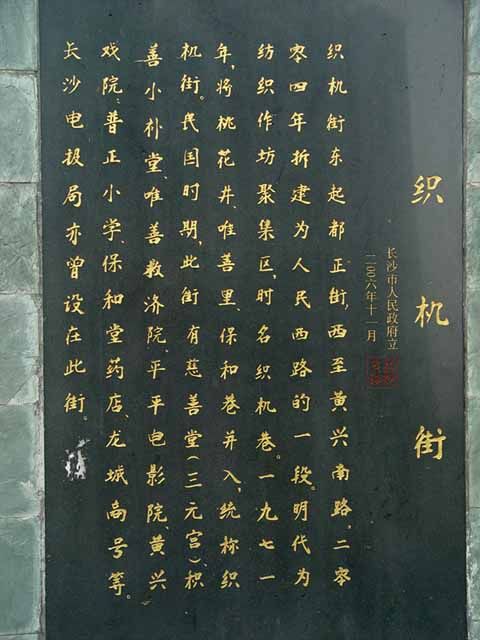 织机街
长沙市人民政府立
二〇〇六年十一月
织机街东起都正街,西至黄兴南路。二零
零四年拆建为人民西路的一段。明代为
纺织作坊聚集区,时名织机巷。一九七一
年,将桃花井、唯善里、保和巷并入,统称织
机街。民国时期,此街有慈善堂(三元宫)、积
善小朴堂、唯善救济院、平平电影院、黄兴
戏院;普正小学、保和堂药店、龙城商号等。
长沙电报局亦曾设在此街。